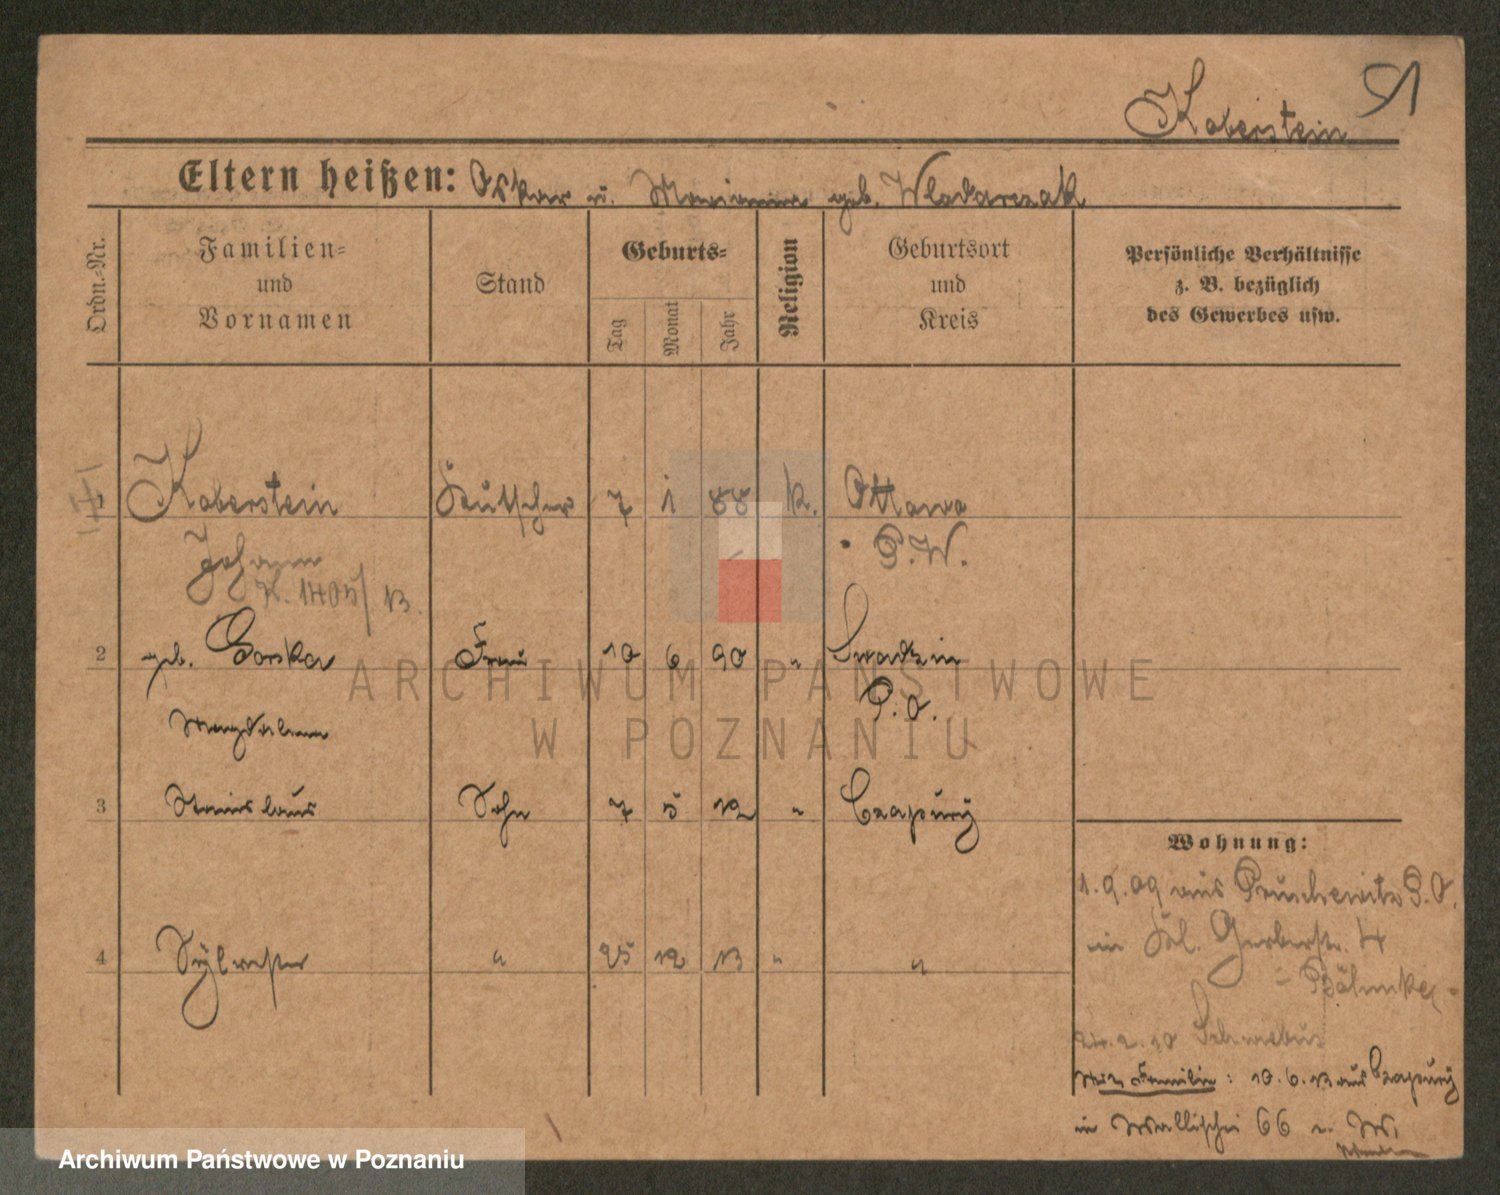 Kaberstein 51
Eltern heißen: Oskar u. Marianna geb. Wlodarczak
Ordn.-Nr.
Familien-
und
Vornamen
Stand
Geburts-
Tag
Monat
Jahr
Religion
Geburtsort
und
Kreis
Persönliche Verhältnisse
z. B. bezüglich
des Gewerbes usw.
1 Kaberstein Deutscher 7 1 88 k. Ottawa
Johann P.W.
K. 1405/13.
2 geb. Gorska Frau 10 6 90 " Swadzin
Magdalena P.O.
3 Stanislaus Sohn 7 5 12 " Czapury
4 Sylvester " 25 12 13 " "
Wohnung:
1.9.09 aus Pruschewitz P.O.
in Gerberstr. 4
24.2.10 Schwiebus
Mit Familie: 10.6.13 aus Czapury
in Wallischei 66
ARCHIWUM PAŃSTWOWE
W POZNANIU
Archiwum Państwowe w Poznaniu